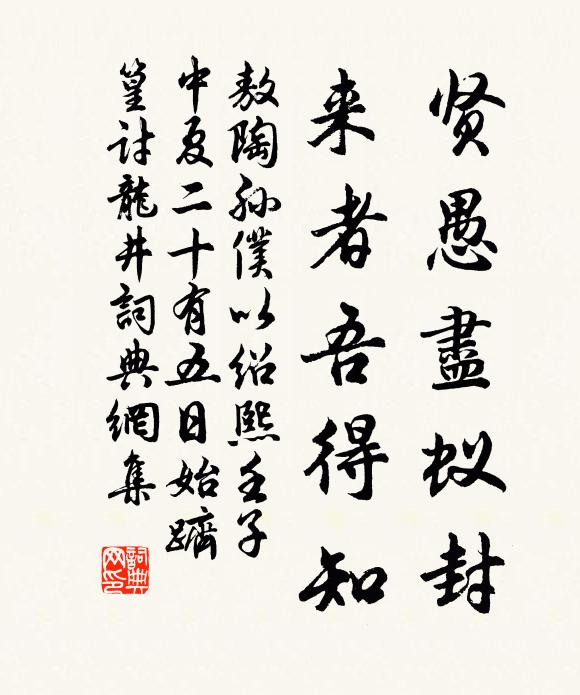 贤愚盡蚁封
来者吾得知
敖陶孙僕以绍熙壬子
中夏二十有五日始躋
篁討龍井詞典網集
詞典网印